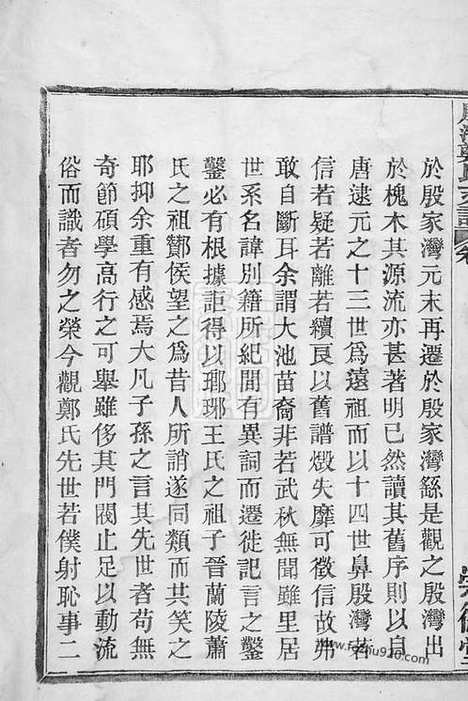 於殷家灣元末再遷於殷家灣繇是觀之殷灣出
於槐木其源流亦甚著明已然讀其舊序則以自
唐逮元之十三世爲遠祖而以十四世鼻殷灣若
信若疑若離若續良以舊譜燬失靡可徵信故弗
敢自斷耳余謂大池苗裔非若武秋無聞雖里居
世系名諱別籍所紀間有異詞而遷徙記言之鑿
鑿必有根據詎得以瑯琊王氏之祖子晉蘭陵蕭
氏之祖酇侯望之爲昔人所誚遂同類而共笑之
耶抑余重有感焉大凡子孫之言其先世者苟無
奇節碩學高行之可舉雖侈其門閥止足以動流
俗而識者勿之榮今觀鄭氏先世若僕射恥事二
www.foushu920.com